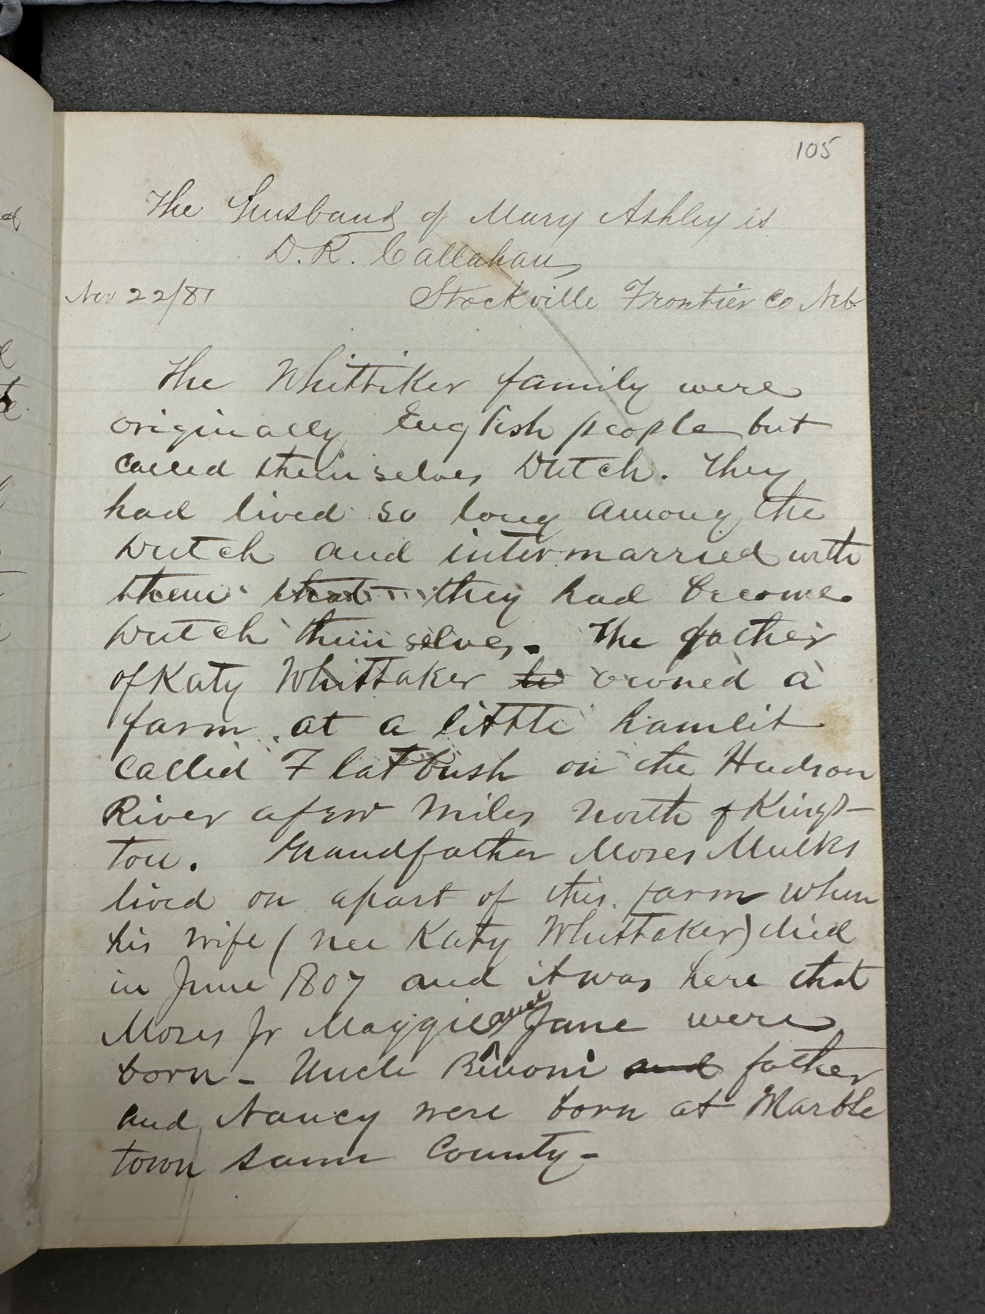 105
The Husband of Mary Ashley is
D. R. Callahan
Nov 22/81 Stockville Frontier Co Neb
The Whittiker family were
originally English people but
called themselves Dutch. They
had lived so long among the
Dutch and intermarried with
them that they had become
Dutch themselves. The father
of Katy Whittaker owned a
farm at a little hamlit
called Flatbush on the Hudson
River a few miles north of Kings-
ton. Grandfather Moses Mulks
lived on a part of this farm when
his wife (nee Katy Whittaker) died
in June 1807 and it was here that
Moses Jr Maggie and Jane were
born - Uncle and father
and Nancy were born at Marble
town same County -